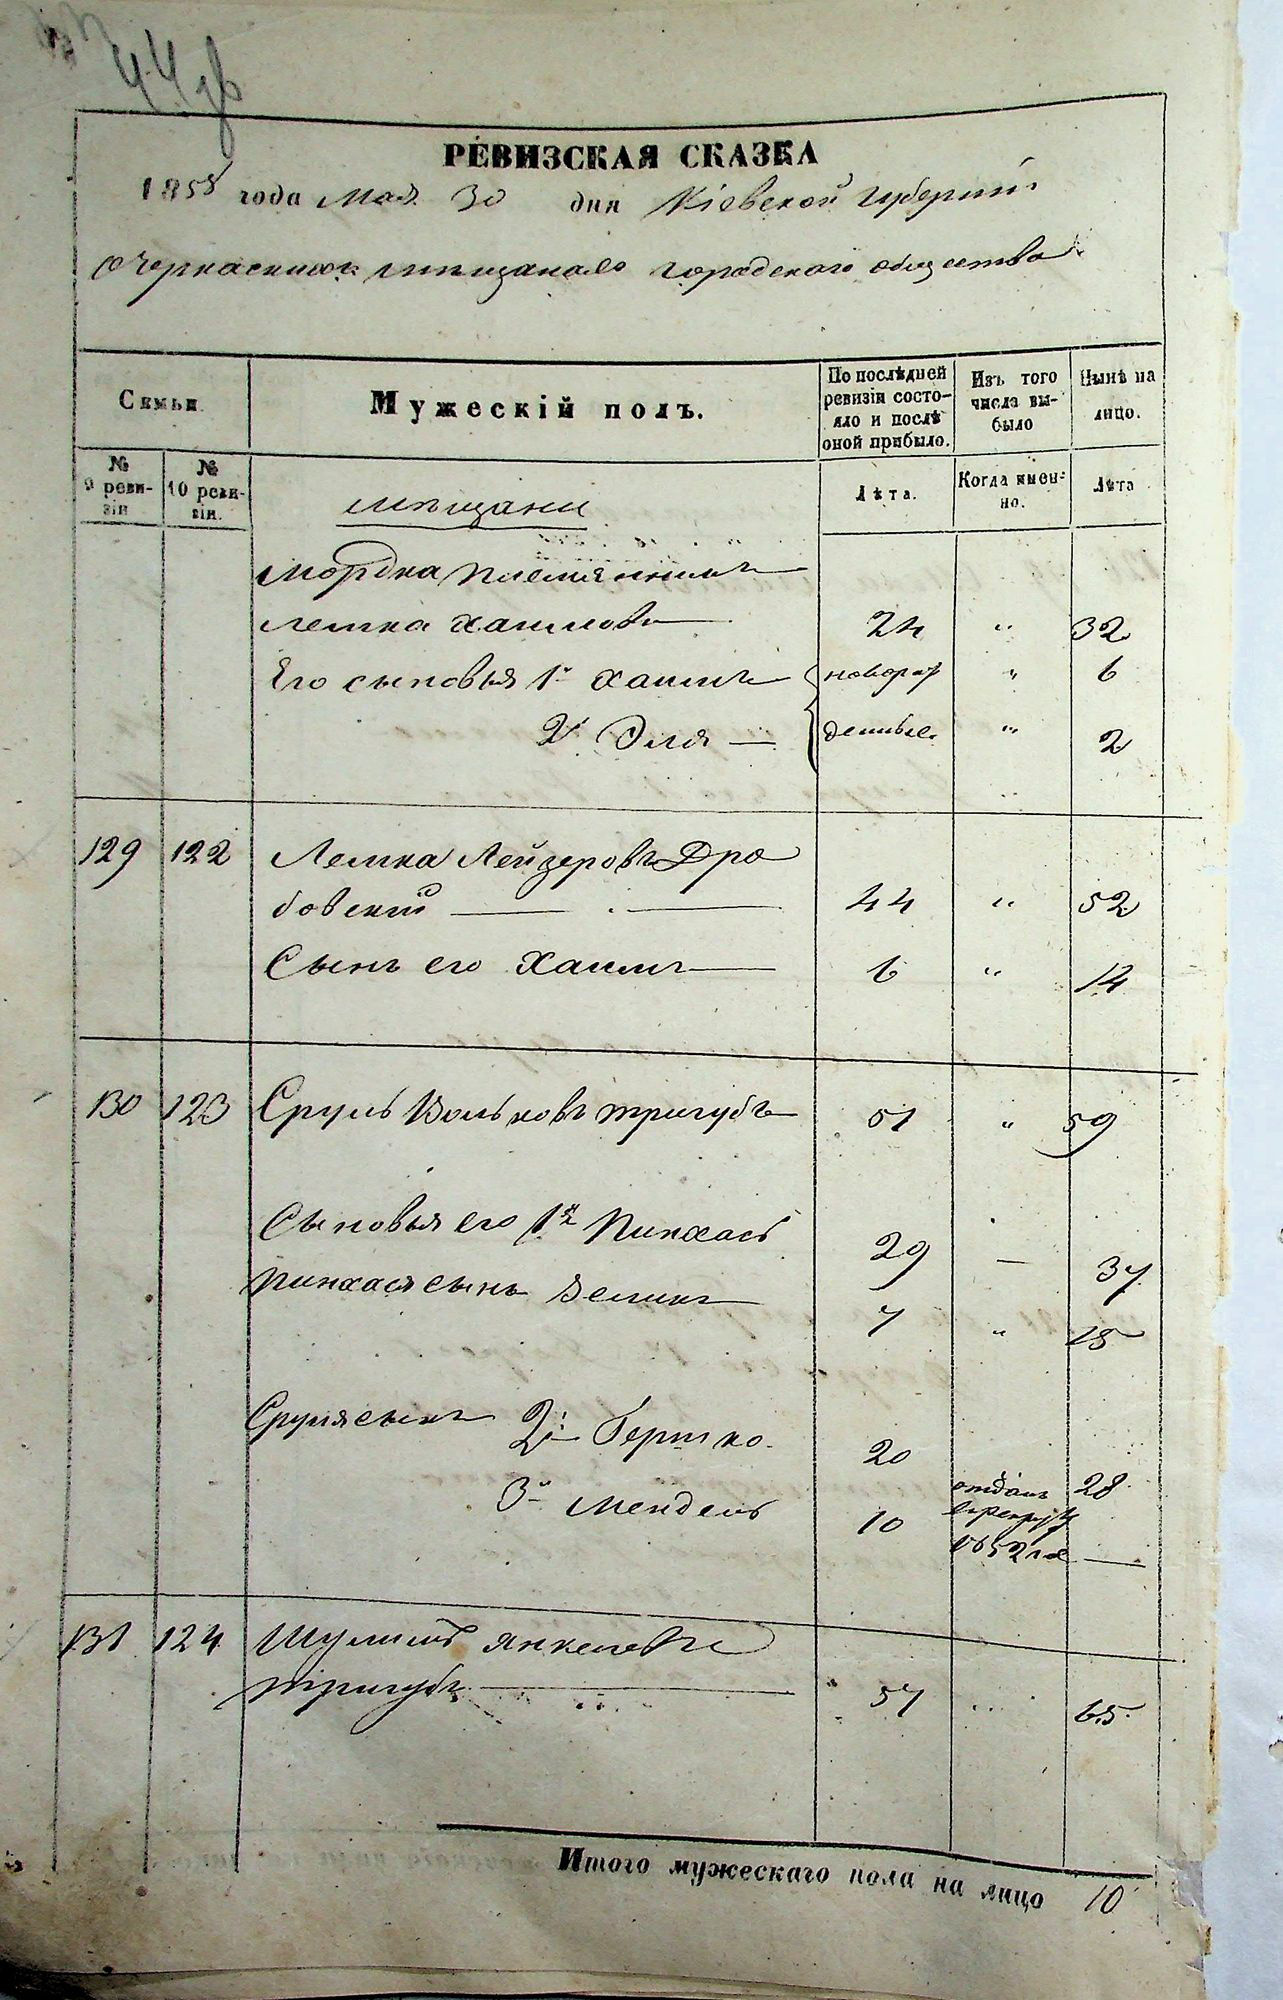 44 об
РЕВИЗСКАЯ СКАЗКА
1858 года Мая 30 дня Кіевской Губерніи
о Черкаскихъ мѣщанахъ городскаго общества
Семьи
Мужескій полъ.
По послѣдней ревизіи состояло и послѣ оной прибыло.
Изъ того числа выбыло
Нынѣ на лицо.
№ 9 ревизіи
№ 10 ревизіи.
мѣщани
Лѣта.
Когда именно.
Лѣта
Мордка племянникъ
Лемка Хаимовъ 24 " 32
Его сыновья 1й Хаимъ новорож " 6
2й Эля денные " 2
129 122 Лемка Лейзеровъ Дра
бовскій 44 " 52
Сынъ его Хаимъ 6 " 14
130 123 Сруль Вольковъ Тригубъ 51 " 59
Сыновья его 1й Пинхасъ 29 — 37
Пинхася сынъ Зеликъ 7 " 15
Сруля сынъ 2й Гершко 20 28
3й Мендель 10 отданъ в рекруты въ 52 годе —
131 124 Шулимъ Янкелевъ
Тригубъ 57 " 65
Итого мужескаго пола на лицо 10